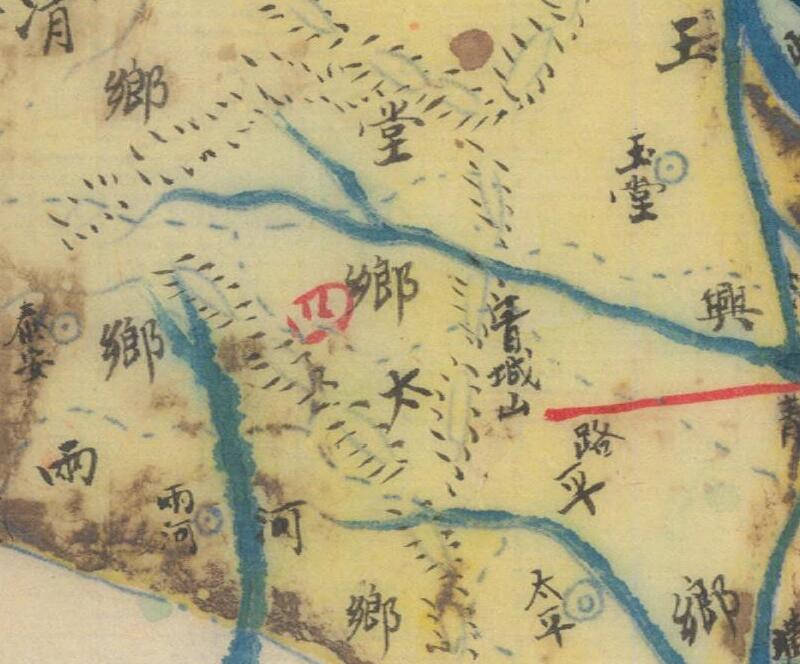 王
鄉
堂
玉堂
四
鄉
興
泰安
鄉
青城山
太
路
平
雨
雨河
河
鄉
太平
鄉